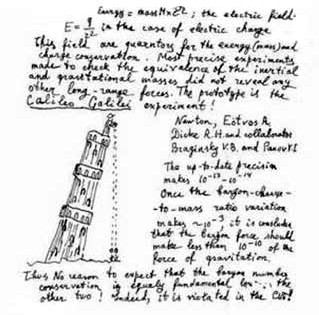 Energy = mass
; the electric field
E = q/r² in the case of electric charge
This field are guarantors for the energy (mass) and
charge conservation. Most precise experiments
made to check the equivalence of the inertial
and gravitational masses did not reveal any
other long-range forces. The prototype is the
Galileo Galilei experiment!
Newton, Eötvos R.
Dicke R.H. and collaborators
Braginsky V.B. and Panov V.I.
The up-to-date precision
makes 10⁻¹³ - 10⁻¹⁴
Once the baryon-charge-
-to-mass ratio variation
makes ~10⁻³ it is conclude
that the baryon force should
make less than 10⁻¹⁰ of the
force of gravitation.
Thus No reason to expect that the baryon number
conservation is equaly fundamental
the
other two! Indeed, it is violated in the